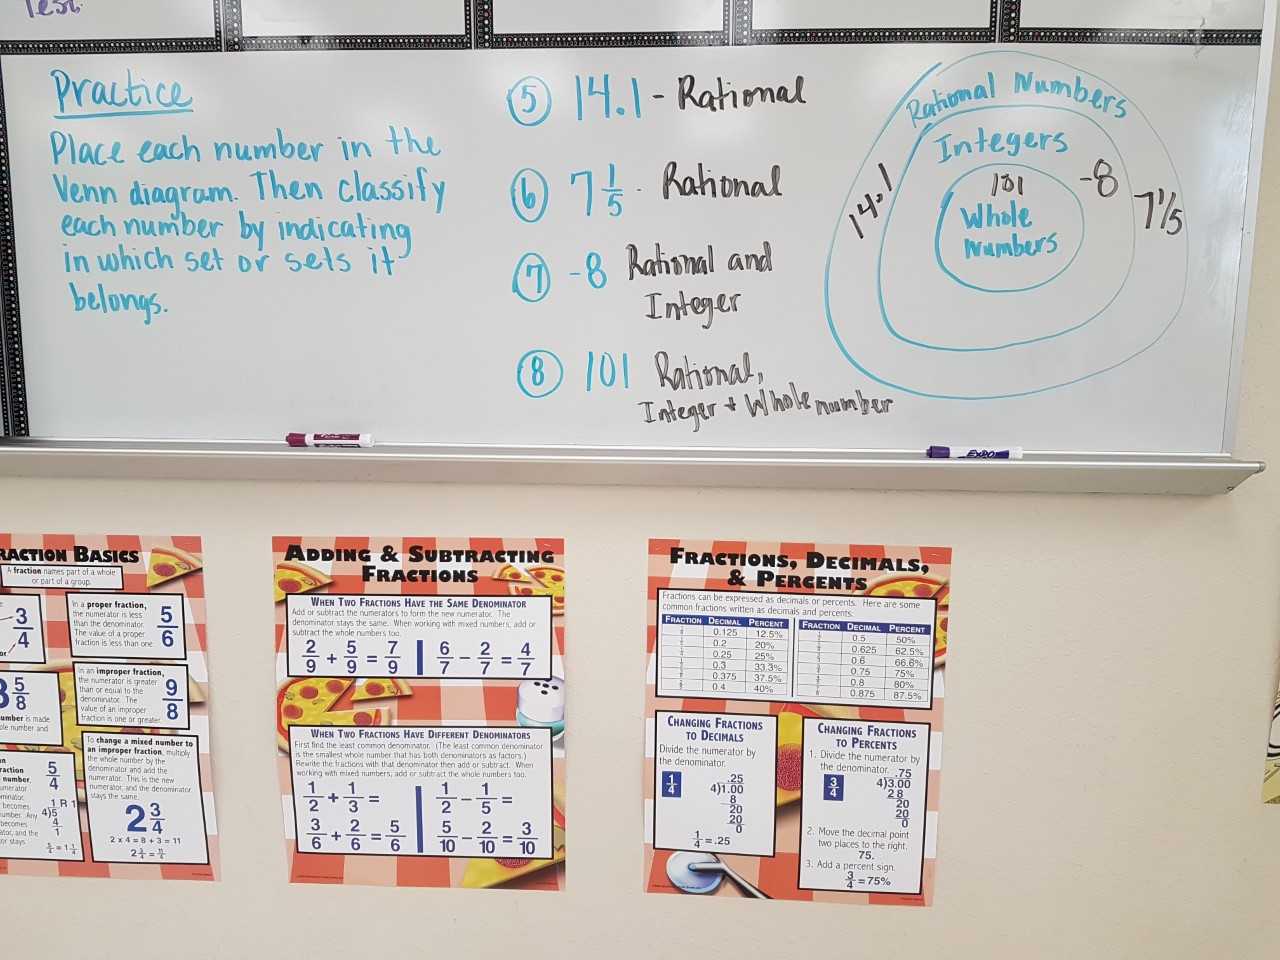 Test
Practice
Place each number in the
Venn diagram. Then classify
each number by indicating
in which set or sets it
belongs.
5 14.1 - Rational
6 7 1/5 - Rational
7 -8 Rational and
Integer
8 101 Rational,
Integer + Whole number
Rational Numbers
Integers
101
Whole
Numbers
-8
14.1
7 1/5
EXPO
RACTION BASICS
A fraction names part of a whole
or part of a group.
3/4
In a proper fraction,
the numerator is less
than the denominator.
The value of a proper
fraction is less than one.
5/6
5/8
umber is made
In an improper fraction,
the numerator is greater
than or equal to the
denominator. The
value of an improper
fraction is one or greater.
9/8
To change a mixed number to
an improper fraction, multiply
the whole number by the
denominator and add the
numerator. This is the new
numerator, and the denominator
stays the same.
2 3/4
2 x 4 = 8 + 3 = 11
2 3/4 = 11/4
5/4
1 R 1
4)5
4
1
5/4 = 1 1/4
ADDING & SUBTRACTING
FRACTIONS
WHEN TWO FRACTIONS HAVE THE SAME DENOMINATOR
Add or subtract the numerators to form the new numerator. The
denominator stays the same. When working with mixed numbers, add or
subtract the whole numbers too.
2/9 + 5/9 = 7/9 6/7 - 2/7 = 4/7
WHEN TWO FRACTIONS HAVE DIFFERENT DENOMINATORS
First find the least common denominator. (The least common denominator
is the smallest whole number that has both denominators as factors.)
Rewrite the fractions with that denominator then add or subtract. When
working with mixed numbers, add or subtract the whole numbers too.
1/2 + 1/3 = 1/2 - 1/5 =
3/6 + 2/6 = 5/6 5/10 - 2/10 = 3/10
FRACTIONS, DECIMALS,
& PERCENTS
Fractions can be expressed as decimals or percents. Here are some
common fractions written as decimals and percents:
FRACTION DECIMAL PERCENT
0.125 12.5%
0.2 20%
0.25 25%
0.3 33.3%
0.375 37.5%
0.4 40%
FRACTION DECIMAL PERCENT
0.5 50%
0.625 62.5%
0.6 66.6%
0.75 75%
0.8 80%
0.875 87.5%
CHANGING FRACTIONS
TO DECIMALS
Divide the numerator by
the denominator.
1/4
.25
4)1.00
8
20
20
0
1/4 = .25
CHANGING FRACTIONS
TO PERCENTS
1. Divide the numerator by
the denominator.
3/4
.75
4)3.00
28
20
20
0
2. Move the decimal point
two places to the right.
75.
3. Add a percent sign.
3/4 = 75%